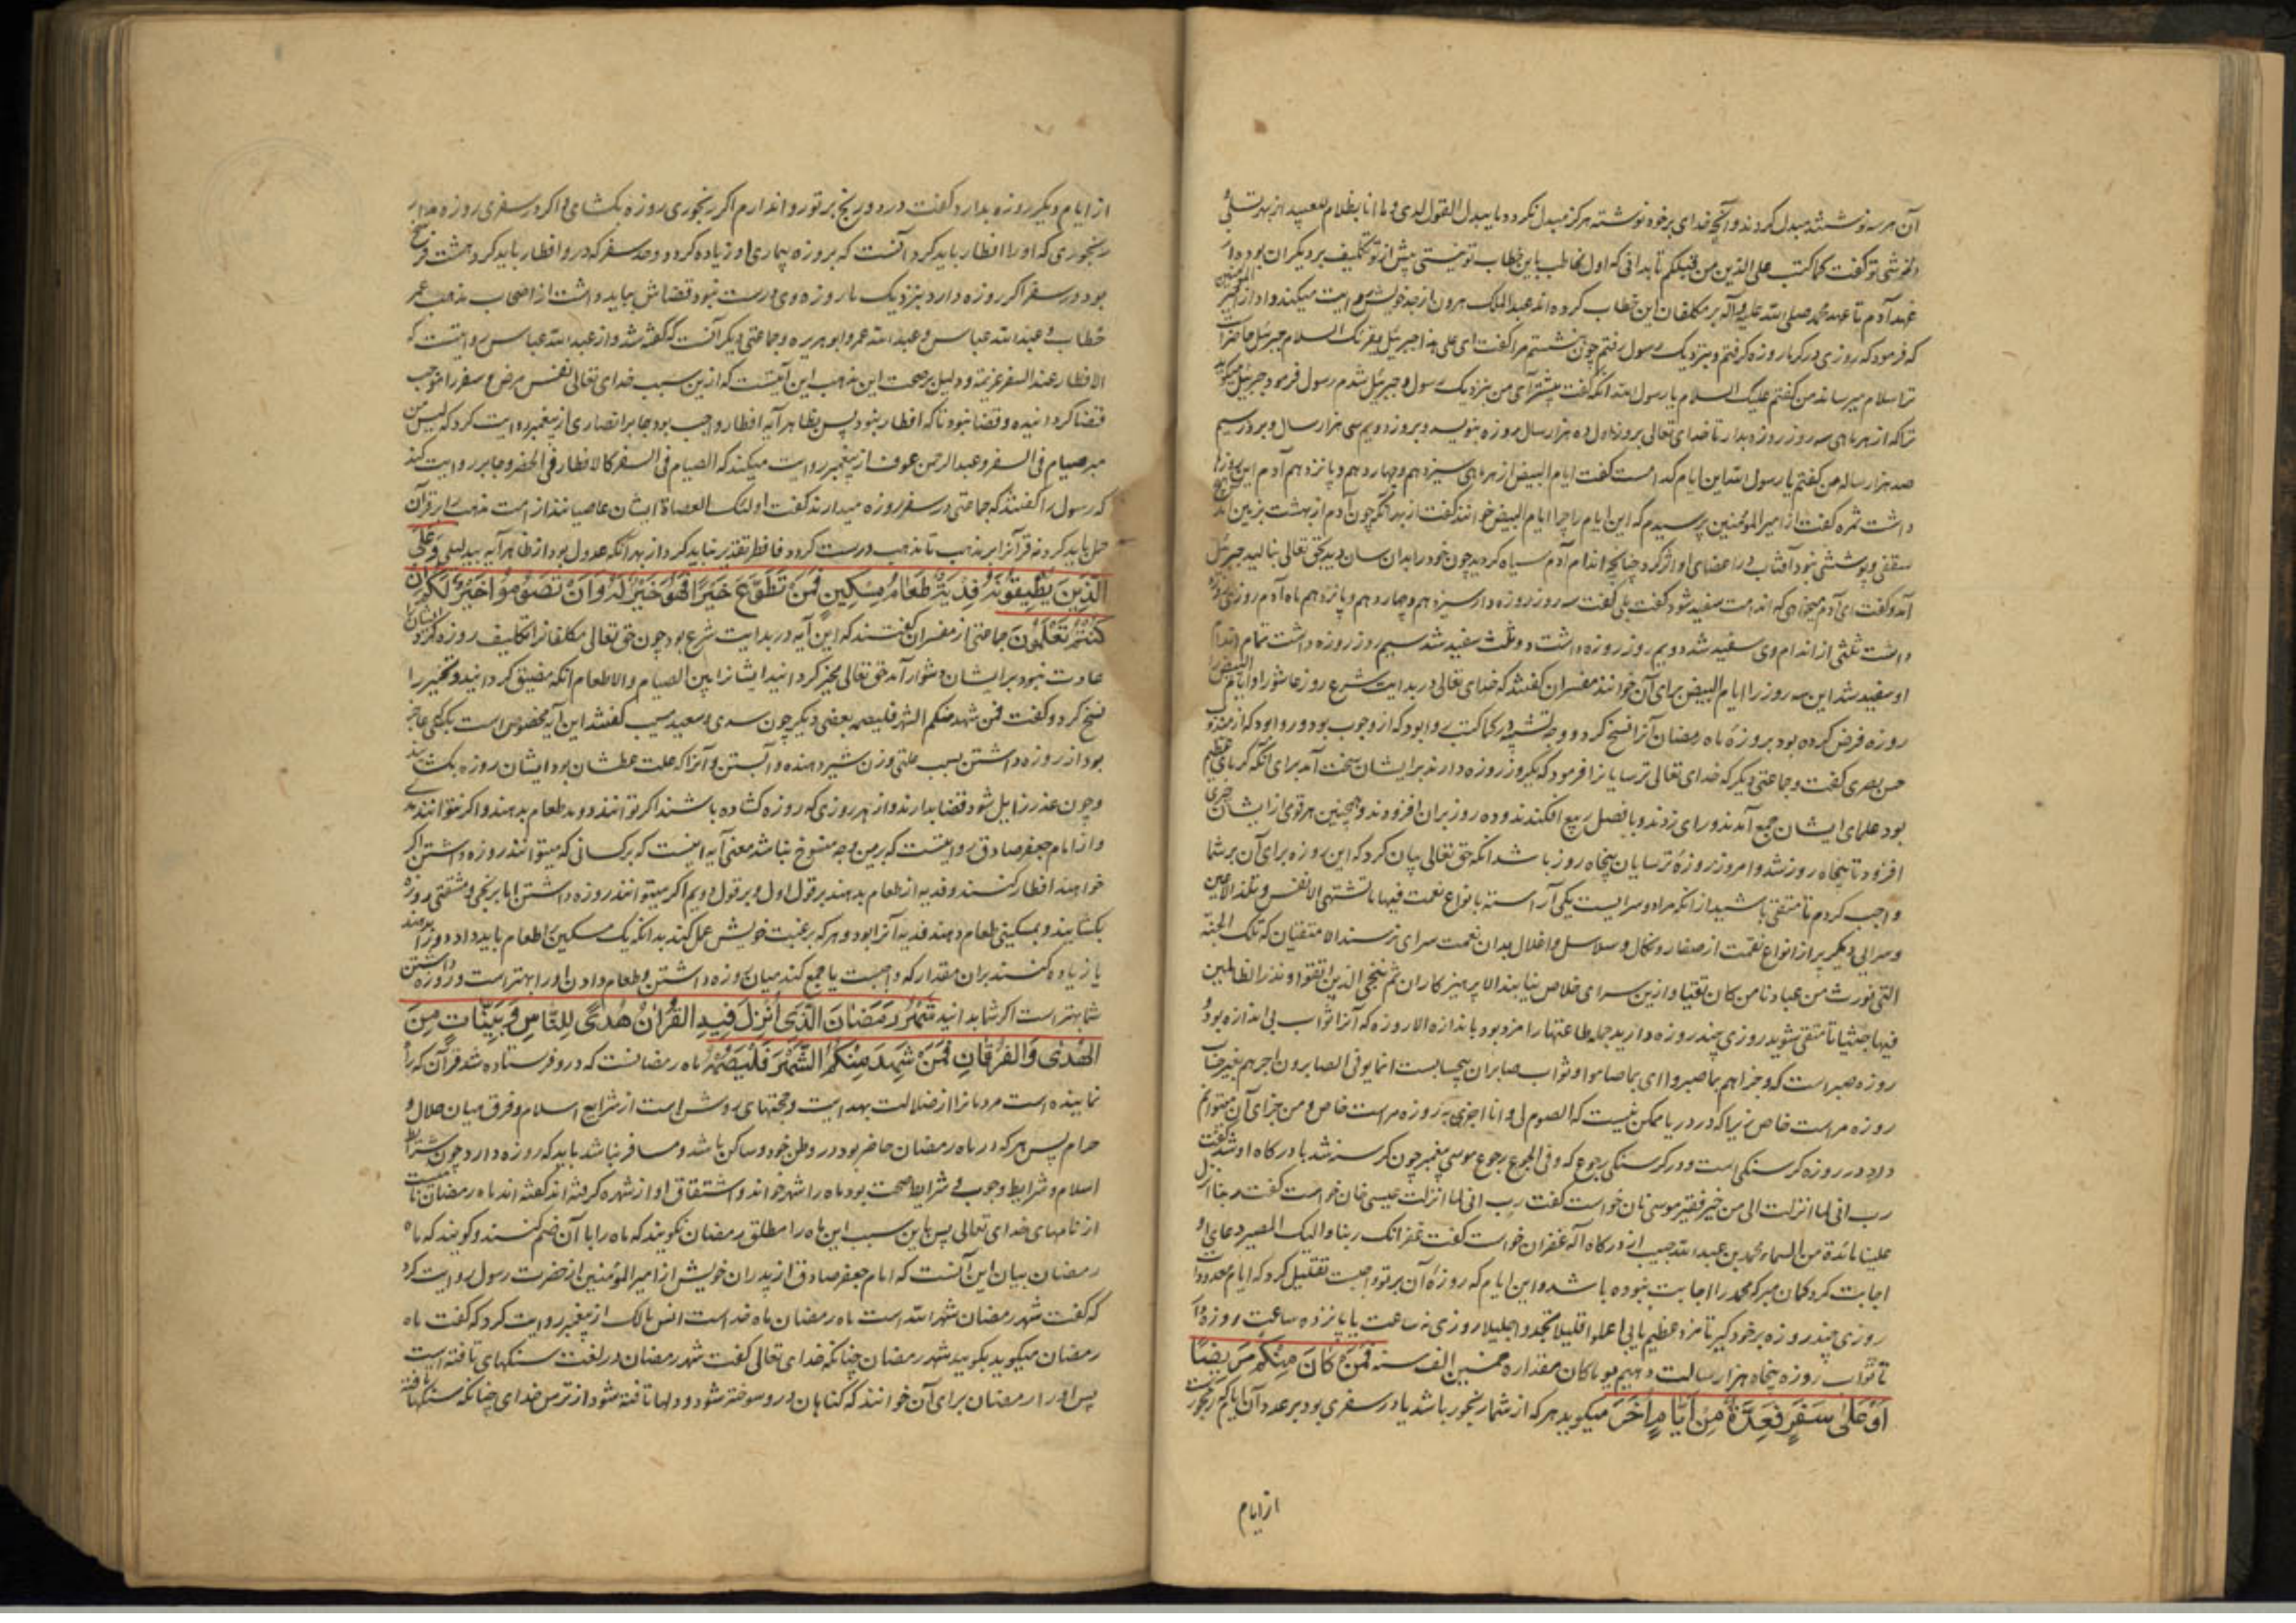 آن هر سه نوشتند مبدل کردند و آنچه خدای بر خود نوشته هرگز مبدل نکردد ما یبدل القول لدی و ما انا بظلام للعبید از بهر تسلی
و خوشی تو گفت کما کتب علی الذین من قبلکم تا بدانی که اول مخاطب باین خطاب تو نیستی پیش از تو تکلیف بر دیگران بوده از
عهد آدم تا عهد محمد صلی الله علیه و آله بر مکلفان این خطاب کرده اند عبدالملک هرون از جد خویش روایت میکند و او از امیر المؤمنین
که فرمود که روزی در کرما روزه گرفتم و بنزدیک رسول رفتم چون بنشستم مرا گفت ای علی هذا جبرئیل یقرئک السلام جبرئیل حاضر
ترا سلام میرساند من گفتم علیک السلام یا رسول الله انکه گفت پیشتر آی من بنزدیک رسول و جبرئیل شدم رسول فرمود جبرئیل میکوید
ترا که از هر ماهی سه روز روزه بدار تا خدای تعالی بروز اول ده هزار سال روزه بنویسد و بروز دویم سی هزار سال و بروز سیم
صد هزار ساله من گفتم یا رسول الله این ایام کدامست گفت ایام البیض از هر ماهی سیزدهم و چهاردهم و پانزدهم آدم این روزها
داشت ثمره گفت از امیر المؤمنین پرسیدم که این ایام را چرا ایام البیض خوانند گفت از بهر آنکه چون آدم از بهشت بزمین آمد
سقفی و پوششی نبود آفتاب در اعضای او اثر کرد چنانچه اندام آدم سیاه گردید چون خود را بدان سان دید بحق تعالی بنالید جبرئیل
آمد و گفت ای آدم میخواهی که اندامت سفید شود گفت بلی گفت سه روز روزه دار سیزدهم و چهاردهم و پانزدهم ماه آدم روزی
داشت ثلثی از اندام وی سفید شد دویم روز روزه داشت دو ثلث سفید شد سیم روز روزه داشت تمام اندام
او سفید شد این سه روز را ایام البیض برای آن خوانند مفسران گفتند که خدای تعالی در بدایت شرع روز عاشورا و ایام البیض را
روزه فرض کرده بود بروزهٔ ماه رمضان آنرا نسخ کرد و وجه تشبیه در کما کتب روا بود که از وجوب بود و روا بود که از
حسن بصری گفت و جماعتی دیگر که خدای تعالی ترسایانرا فرمود که یکروز روزه دارند بر ایشان سخت آمد برای آنکه گرمای عظیم
بود علمای ایشان جمع آمدند و رای زدند و با فصل ربیع افکندند و ده روز بران افزودند و همچنین هر قومی از ایشان چیزی
افزود تا پنجاه روز شد و امروز روزهٔ ترسایان پنجاه روز باشد انکه حق تعالی بیان کرد که این روزه برای آن بر شما
واجب کردم تا متقی باشید از آنکه مرا دو سرایست یکی آراسته بانواع نعمت فیها ما تشتهی الانفس و تلذ الاعین
و سرای دیگر پر از انواع نقمت از صغار و نکال و سلاسل و اغلال بدان نعمت سرای نرسند الا متقیان که تلک الجنة
التی نورث من عبادنا من کان تقیا و ازین سرای خلاص نیابند الا پرهیزکاران ثم ننجی الذین اتقوا و نذر الظالمین
فیها جثیا تا متقی شوید روزی چند روزه دارید جمله طاعتها را مزد بود باندازه الا روزه که آنرا ثواب بی اندازه بود
روزه صبر است که و جزاهم بما صبروا ای بما صاموا و ثواب صابران بیحسابست انما یوفی الصابرون اجرهم بغیر حساب
روزه مراست خاص زیرا که درو ریا ممکن نیست که الصوم لی و انا اجزی به روزه مراست خاص و من جزای آن میتوانم
داد در روزه گرسنگی است و در گرسنگی رجوع که و فی الجوع رجوع موسی پیغمبر چون گرسنه شد با درگاه او شد گفت
رب انی لما انزلت الی من خیر فقیر موسی نان خواست گفت رب انی لما انزلت عیسی خان خواست گفت ربنا انزل
علینا مائدة من السماء محمد بن عبدالله حبیب از درگاه اله غفران خواست گفت غفرانک ربنا و الیک المصیر دعای او
اجابت کرد گمان مبر که محمد را اجابت نبوده باشد و این ایام که روزهٔ آن بر تو واجبست تقلیل کرد که ایام معدودات
روزی چند روزه بر خود گیر تا مزد عظیم یابی اعملوا قلیلا تجدوا جلیلا روزی نه ساعت یا پانزده ساعت روزه دار
تا ثواب روزه پنجاه هزار سالت دهیم یوم کان مقداره خمسین الف سنة فَمَنْ كَانَ مِنْكُمْ مَرِيضًا
أَوْ عَلَىٰ سَفَرٍ فَعِدَّةٌ مِنْ أَيَّامٍ أُخَرَ میکوید هر که از شما رنجور باشد یا در سفری بود بر عدد آن ایام که
از ایام
از ایام دیگر روزه بدارد گفت درد و رنج بر تو روا ندارم اگر رنجوری روزه بگشای و اگر در سفری روزه مدار
رنجوری که او را افطار باید کرد آنست که بروزه بیماری او زیاده گردد و حد سفر که درو افطار باید کرد هشت فرسخ
بود در سفر اگر روزه دارد بنزدیک ما روزه وی درست نبود قضاش بباید داشت از اصحاب مذهب عمر
خطاب و عبدالله عباس و عبدالله عمر و ابو هریره و جماعتی دیگر آنست که گفته شد و از عبدالله عباس روایتست که
الافطار عند السفر عزیمة و دلیل بر صحت این مذهب این آیتست که ازین سبب خدای تعالی نفس مرض و سفر را موجب
قضا گردانیده و قضا نبود تا که افطار نبود پس بظاهر آیه افطار واجب بود جابر انصاری از پیغمبر روایت کرد که لیس من
مبر صیام فی السفر و عبدالرحمن عوف از پیغمبر روایت میکند که الصیام فی السفر کالافطار فی الحضر و جابر روایت کند
که رسول را گفتند که جماعتی در سفر روزه میدارند گفت اولئک العصاة ایشان عاصیانند از امت مذهب را بر قرآن
حمل باید کرد نه قرآنرا بر مذهب تا مذهب درست گردد فافطر تقدیر نباید کرد از بهر آنکه عدول بود از ظاهر آیه بیدلیلی وَعَلَى
الَّذِينَ يُطِيقُونَهُ فِدْيَةٌ طَعَامُ مِسْكِينٍ فَمَنْ تَطَوَّعَ خَيْرًا فَهُوَ خَيْرٌ لَهُ وَأَنْ تَصُومُوا خَيْرٌ لَكُمْ إِنْ
كُنْتُمْ تَعْلَمُونَ جماعتی از مفسران گفتند که این آیه در بدایت شرع بود چون حق تعالی مکلفانرا تکلیف روزه کرد و ایشانرا
عادت نبود بر ایشان دشوار آمد حق تعالی مخیر گردانید ایشانرا بین الصیام والاطعام انکه مضیق گردانید و تخییر را
نسخ کرد و گفت فمن شهد منکم الشهر فلیصمه بعضی دیگر چون سدی و سعید مسیب گفتند این آیه مخصوص است بکسی که عاجز
بود از روزه داشتن بسبب علتی و زن شیر دهنده و آبستن و آنرا که علت عطشان بود ایشان روزه بگشایند
و چون عذر زایل شود قضا بدارند و از بهر روزی که روزه گشاده باشند اگر توانند دو مد طعام بدهند و اگر نتوانند مدی
و از امام جعفر صادق روایتست که برین وجه منسوخ نباشد معنی آیه اینست که بر کسانی که میتوانند روزه داشتن اگر
خواهند افطار کنند و فدیه از طعام بدهند بر قول اول و بر قول دویم اگر میتوانند روزه داشتن اما برنجی و مشقتی روزه
بگشایند و بمسکینی طعام دهند فدیه آنرا بود و هر که برغبت خویش عمل کند بدانکه یک مسکین را طعام باید داد دو را بدهند
یا زیاده کنند بران مقدار که واجبست یا جمع کند میان روزه داشتن و طعام دادن او را بهتر است و روزه داشتن
شما بهتر است اگر شما بدانید شَهْرُ رَمَضَانَ الَّذِي أُنْزِلَ فِيهِ الْقُرْآنُ هُدًى لِلنَّاسِ وَبَيِّنَاتٍ مِنَ
الْهُدَىٰ وَالْفُرْقَانِ فَمَنْ شَهِدَ مِنْكُمُ الشَّهْرَ فَلْيَصُمْهُ ماه رمضانست که درو فرستاده شد قرآن که راه
نماینده است مردمانرا از ضلالت بهدایت و حجتهای روشن است از شرایع اسلام و فرق میان حلال و
حرام پس هر که در ماه رمضان حاضر بود در وطن خود و ساکن باشد و مسافر نباشد باید که روزه دارد چون شرایط
اسلام و شرایط وجوب و شرایط صحت بود ماه را شهر خواند و اشتقاق او از شهره گرفته اند گفته اند ماه رمضان نامیست
از نامهای خدای تعالی پس باین سبب این ماه را مطلق رمضان نگویند که ماه را با آن ضم کنند و گویند که ماه
رمضان بیان این آنست که امام جعفر صادق از پدران خویش از امیر المؤمنین از حضرت رسول روایت کرد
که گفت شهر رمضان شهر الله است ماه رمضان ماه خداست انس مالک از پیغمبر روایت کرد که گفت ماه
رمضان میگوید بگویید شهر رمضان چنانکه خدای تعالی گفت شهر رمضان در لغت سنگهای تافته است
پس او را رمضان برای آن خوانند که گناهان درو سوخته شود و دلها تافته شود از ترس خدای چنانکه سنگها تافته